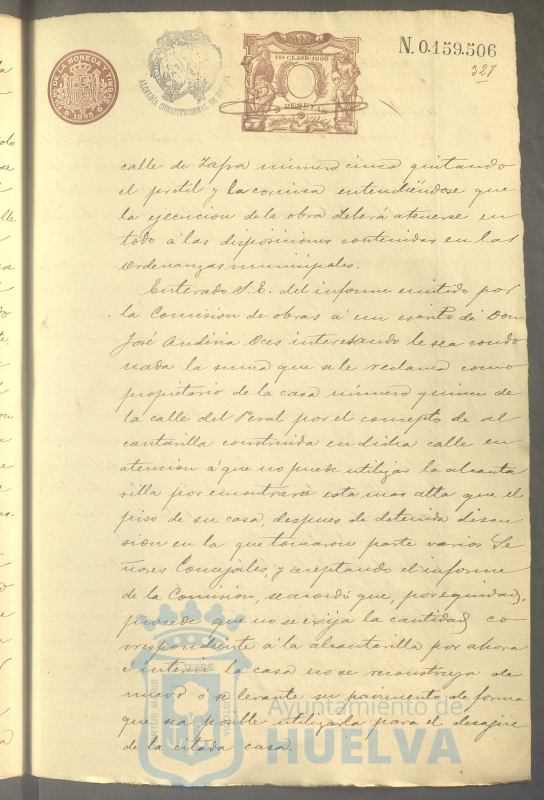 FCA. DE LA MONEDA Y TIMBRE
1895
ALCALDIA CONSTITUCIONAL DE HUELVA
11ª CLASE-1895
PESETA
N. 0.159.506
327
calle de Zafra número cinco quitando
el pretil y la cornisa entendiéndose que
la ejecucion de la obra deberá atenerse en
todo á las disposiciones contenidas en las
Ordenanzas municipales.
Enterado S. E. del informe emitido por
la Comision de obras á un escrito de Don
José Andivia Oces interesando le sea condo
nada la suma que se le reclama como
propietario de la casa número quince de
la calle del Peral por el concepto de al
cantarilla construida en dicha calle en
atencion á que no puede utilizar la alcanta
rilla por encontrarse esta mas alta que el
piso de su casa, despues de detenida discu
sion en la que tomaron parte varios Se
ñores Concejales, y aceptando el informe
de la Comision, se acordó que, por equidad,
procede que no se exija la cantidad co
rrespondiente á la alcantarilla por ahora
é interin la casa no se reconstruya de
nuevo ó se levante su pavimento de forma
que sea posible utilizarla para el desagüe
de la citada casa.
Ayuntamiento de
HUELVA